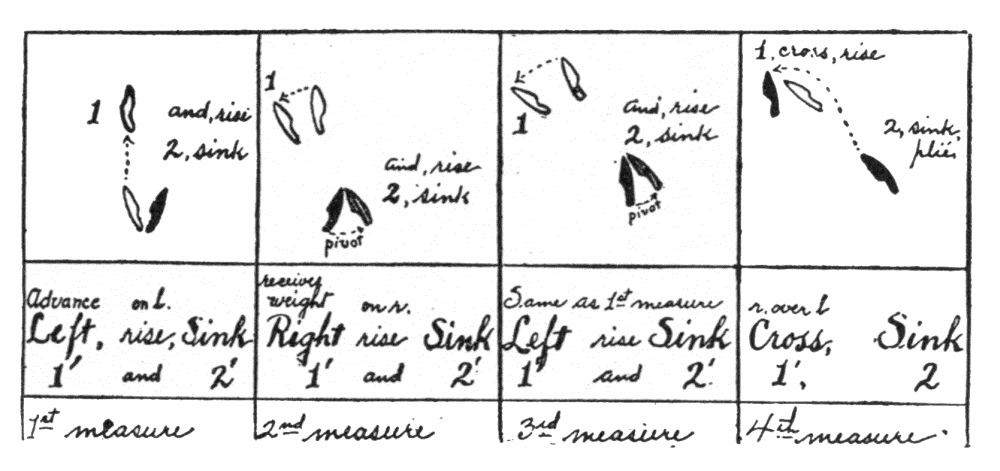 1
and, rise
2, sink
1
and, rise
2, sink
pivot
1
and, rise
2, sink
pivot
1, cross, rise
2, sink,
pliés
Advance on l.
Left, rise, Sink
1' and 2'
receives
weight on r.
Right rise Sink
1' and 2'
Same as 1st measure
Left rise Sink
1' and 2'.
r. over l
Cross, Sink
1', 2
1st measure
2nd measure
3rd measure
4th measure.